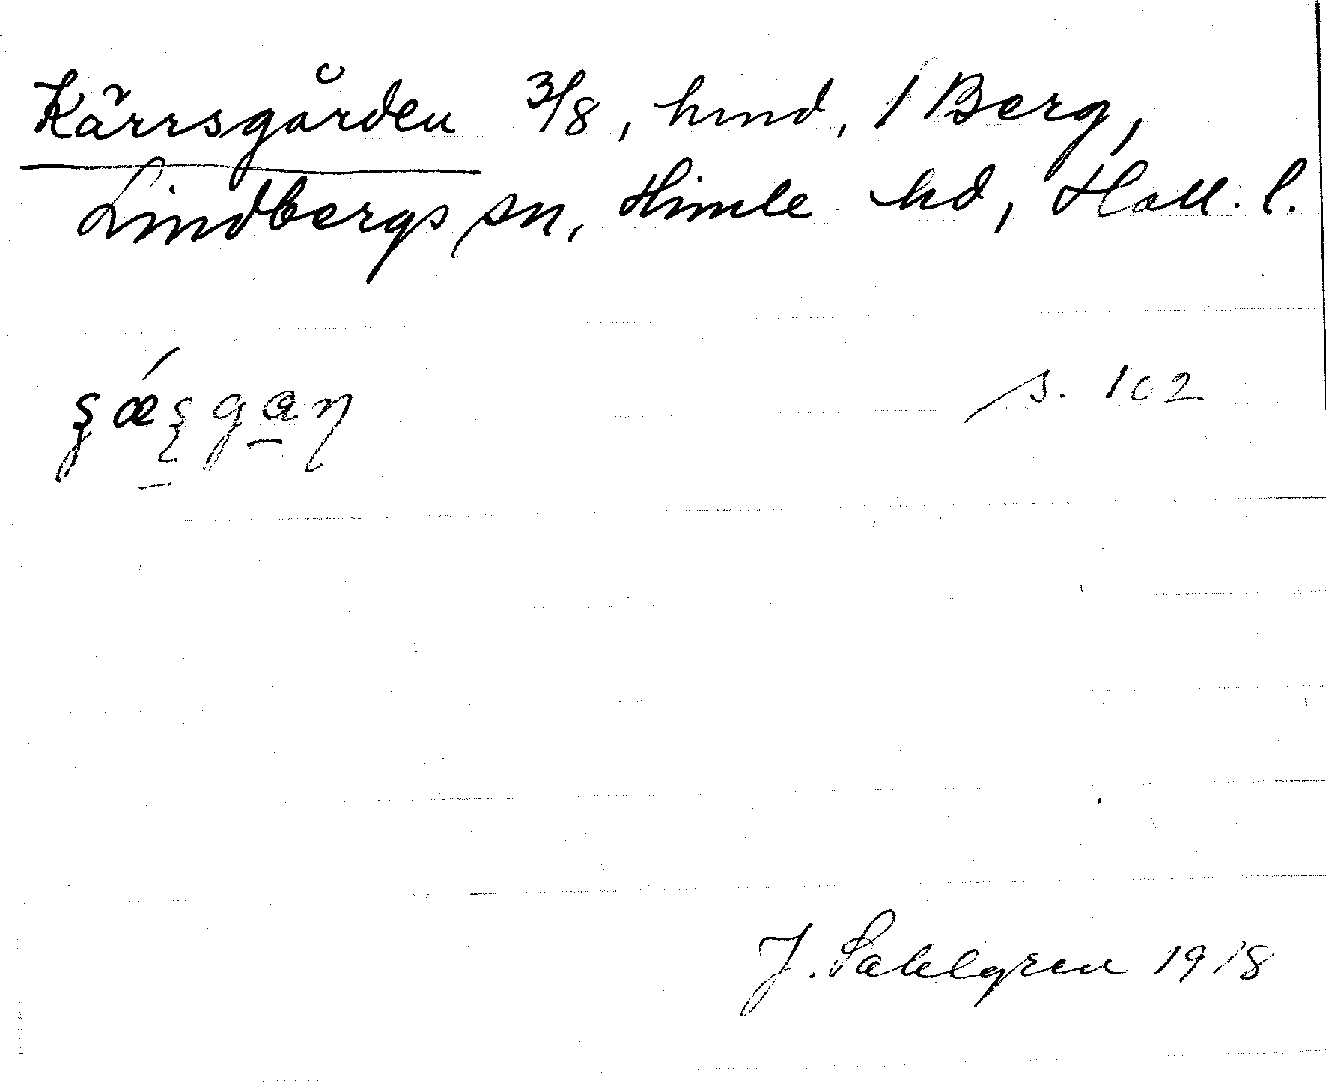 Kärrsgården 3/8, hmd, i Berg,
Lindbergs sn, Himle hd, Hall. l.
s. 102
J. Sahlgren 1918